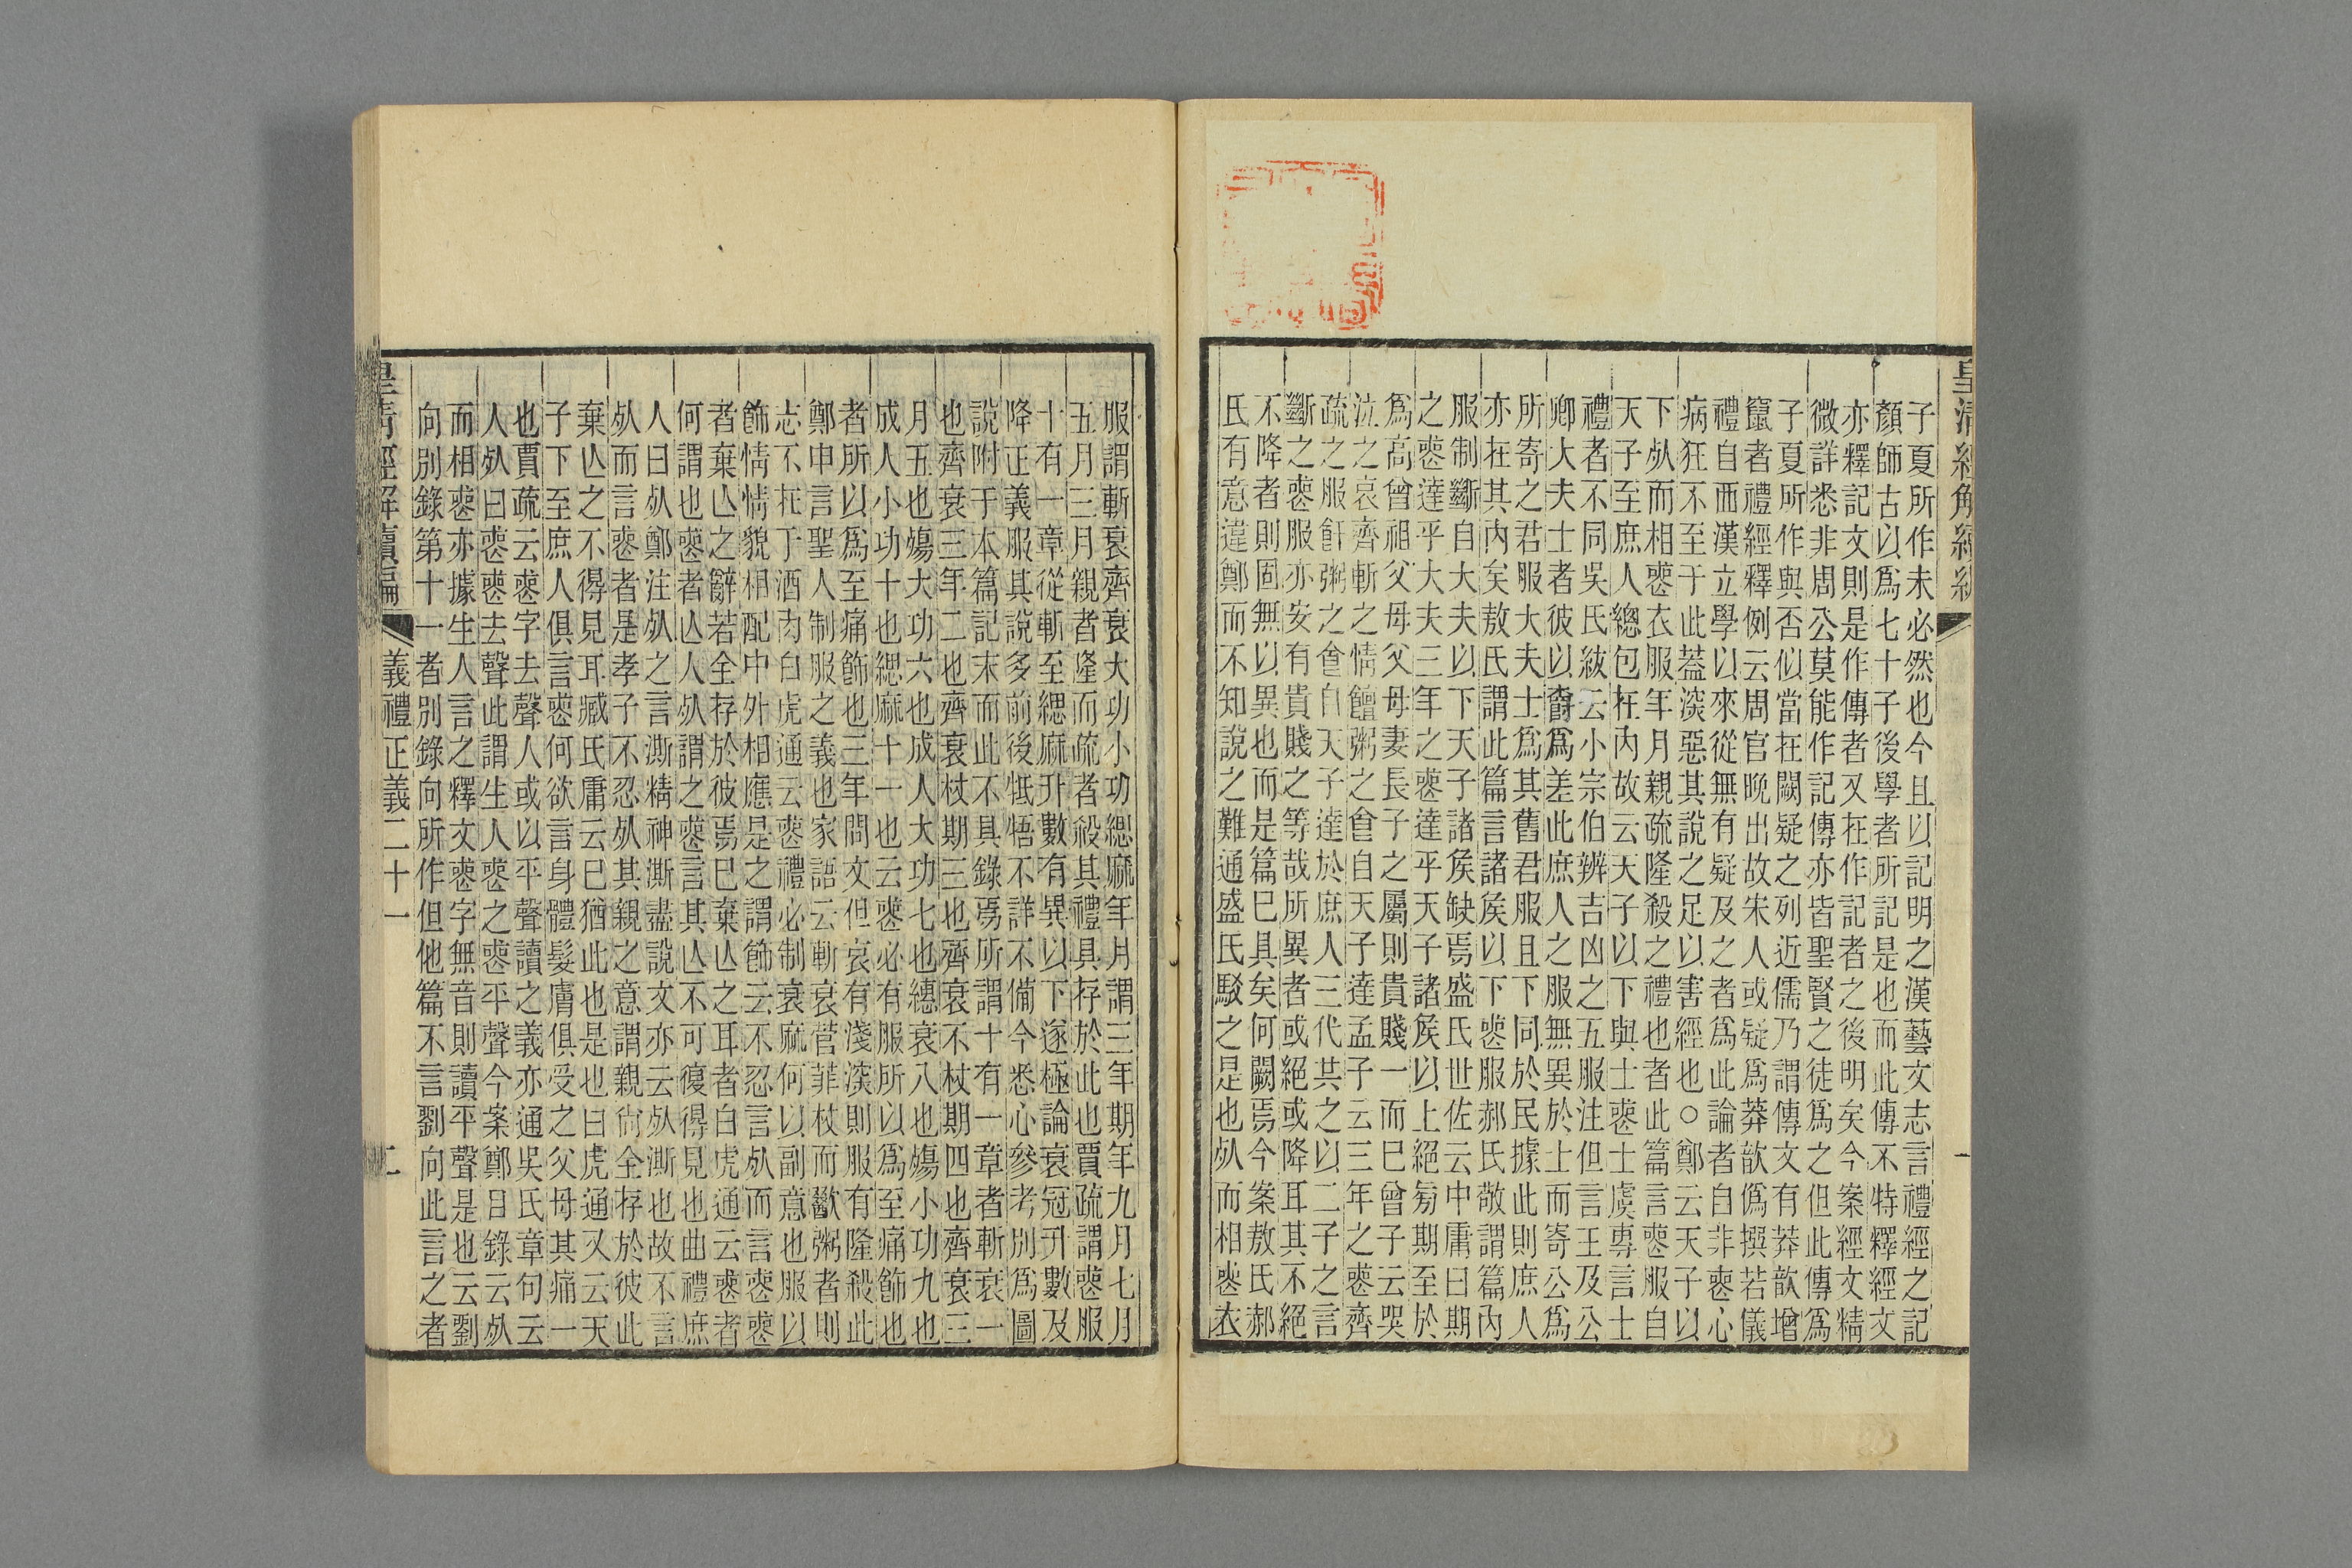 皇清經解續編
一
子夏所作未必然也今且以記明之漢藝文志言禮經之記
顏師古以爲七十子後學者所記是也而此傳不特釋經文
亦釋記文則是作傳者又在作記者之後明矣今案經文精
微詳悉非周公莫能作記傳亦皆聖賢之徒爲之但此傳爲
子夏所作與否似當在闕疑之列近儒乃謂傳文有莽歆增
竄者禮經釋例云周官晚出故宋人或疑爲莽歆僞撰若儀
禮自西漢立學以來從無有疑及之者爲此論者自非喪心
病狂不至于此蓋深惡其說之足以害經也○鄭云天子以
下死而相喪衣服年月親疏隆殺之禮也者此篇言喪服自
天子至庶人總包在內故云天子以下與士喪士虞專言士
禮者不同吳氏紱云小宗伯辨吉凶之五服注但言王及公
卿大夫士者彼以爵爲差此庶人之服無異於士而寄公爲
所寄之君服大夫士爲其舊君服且下同於民據此則庶人
亦在其內矣敖氏謂此篇言諸矦以下喪服郝氏敬謂篇內
服制斷自大夫以下天子諸矦缺焉盛氏世佐云中庸曰期
之喪達乎大夫三年之喪達乎天子諸矦以上絕旁期至於
爲高曾祖父母父母妻長子之屬則貴賤一而已曾子云哭
泣之哀齊斬之情饘粥之食自天子達孟子云三年之喪齊
疏之服飦粥之食自天子達於庶人三代共之以二子之言
斷之喪服亦安有貴賤之等哉所異者或絕或降耳其不絕
不降者則固無以異也而是篇已具矣何闕焉今案敖氏郝
氏有意違鄭而不知說之難通盛氏駁之是也死而相喪衣
服謂斬衰齊衰大功小功緦麻年月謂三年期年九月七月
五月三月親者隆而疏者殺其禮具存於此也賈疏謂喪服
十有一章從斬至緦麻升數有異以下遂極論衰冠升數及
降正義服其說多前後牴牾不詳不備今悉心參考別爲圖
說附于本篇記末而此不具錄焉所謂十有一章者斬衰一
也齊衰三年二也齊衰杖期三也齊衰不杖期四也齊衰三
月五也殤大功六也成人大功七也繐衰八也殤小功九也
成人小功十也緦麻十一也云喪必有服所以爲至痛飾也
者所以爲至痛飾也三年問文但哀有淺深則服有隆殺此
鄭申言聖人制服之義也家語云斬衰菅菲杖而歠粥者則
志不在于酒肉白虎通云喪禮必制衰麻何以副意也服以
飾情情貌相配中外相應是之謂飾云不忍言死而言喪喪
者棄亾之辭若全存於彼焉已棄亾之耳者白虎通云喪者
何謂也喪者亾人死謂之喪言其亾不可復得見也曲禮庶
人曰死鄭注死之言澌精神澌盡說文亦云死澌也故不言
死而言喪者是孝子不忍死其親之意謂親尚全存於彼此
棄亾之不得見耳臧氏庸云巳猶此也是也白虎通又云天
子下至庶人俱言喪何欲言身體髮膚俱受之父母其痛一
也賈疏云喪字去聲人或以平聲讀之義亦通吳氏章句云
人死曰喪喪去聲此謂生人喪之喪平聲今案鄭目錄云死
而相喪亦據生人言之釋文喪字無音則讀平聲是也云劉
向別錄第十一者別錄向所作但他篇不言劉向此言之者
皇清經解續編
儀禮正義二十一
二